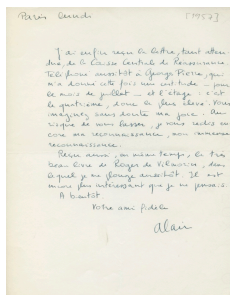 Paris lundi
[1957]
J'ai enfin reçu la lettre, tant atten-
due, de la Caisse Centrale de Réassurance.
Téléphoné aussitôt à George Pierre, qui
m'a donné cette fois une certitude : pour
le mois de juillet - et l'étage : c'est
le quatrième, donc le plus élevé. Vous
imaginez sans doute ma joie. Au
risque de vous lasser, je vous redis en-
core ma reconnaissance, mon immense
reconnaissance.
Reçu aussi, en même temps, le très
beau livre de Roger de Vilmorin, dans
lequel je me plonge aussitôt. Il est
encore plus intéressant que je ne pensais
A bientôt
Votre ami fidèle
Alain